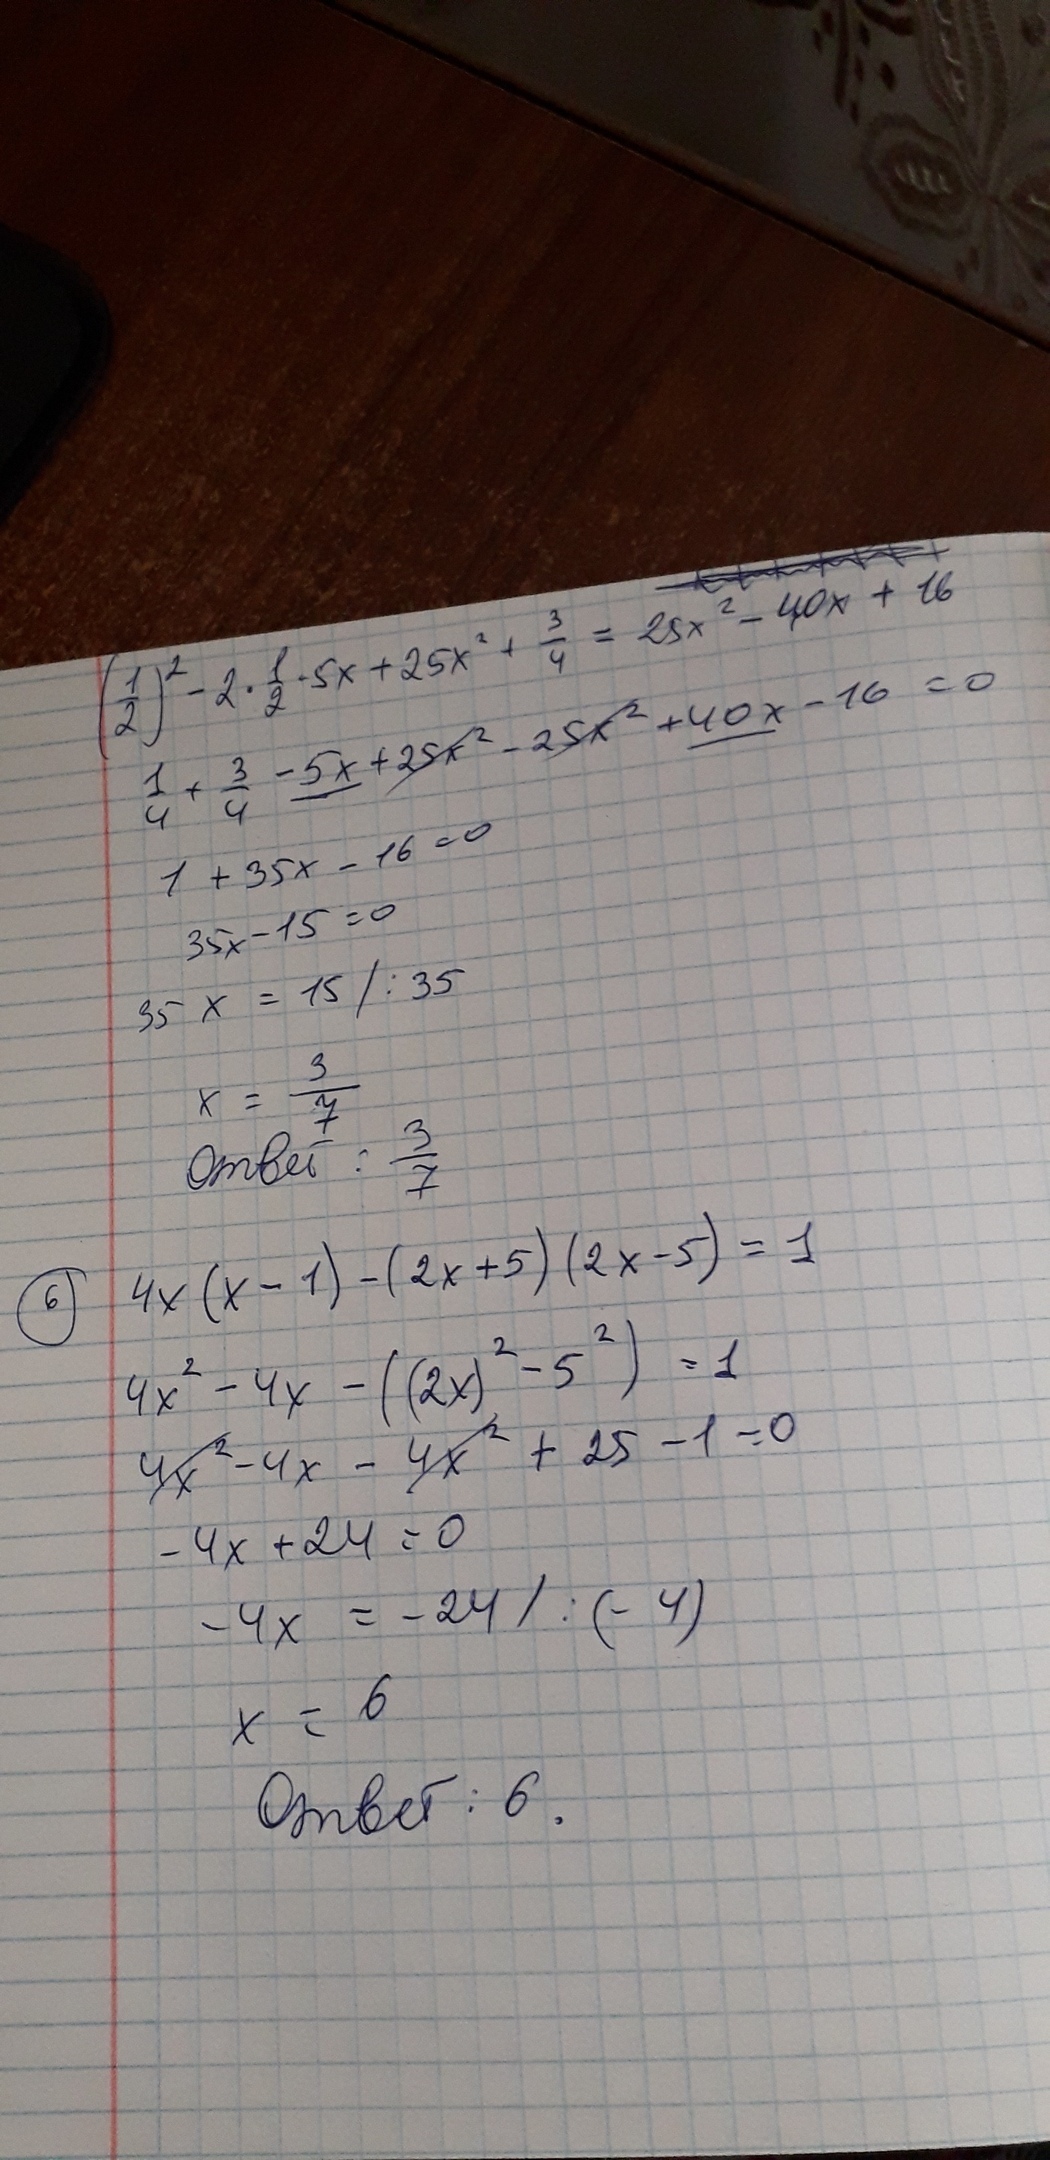 (1/2)² - 2 · 1/2 · 5x + 25x² + 3/4 = 25x² - 40x + 16
1/4 + 3/4 - 5x + 25x² - 25x² + 40x - 16 = 0
1 + 35x - 16 = 0
35x - 15 = 0
35x = 15 / : 35
x = 3/7
Ответ : 3/7
6 4x(x - 1) - (2x + 5)(2x - 5) = 1
4x² - 4x - ((2x)² - 5²) = 1
4x² - 4x - 4x² + 25 - 1 = 0
-4x + 24 = 0
-4x = -24 / : (-4)
x = 6
Ответ : 6.